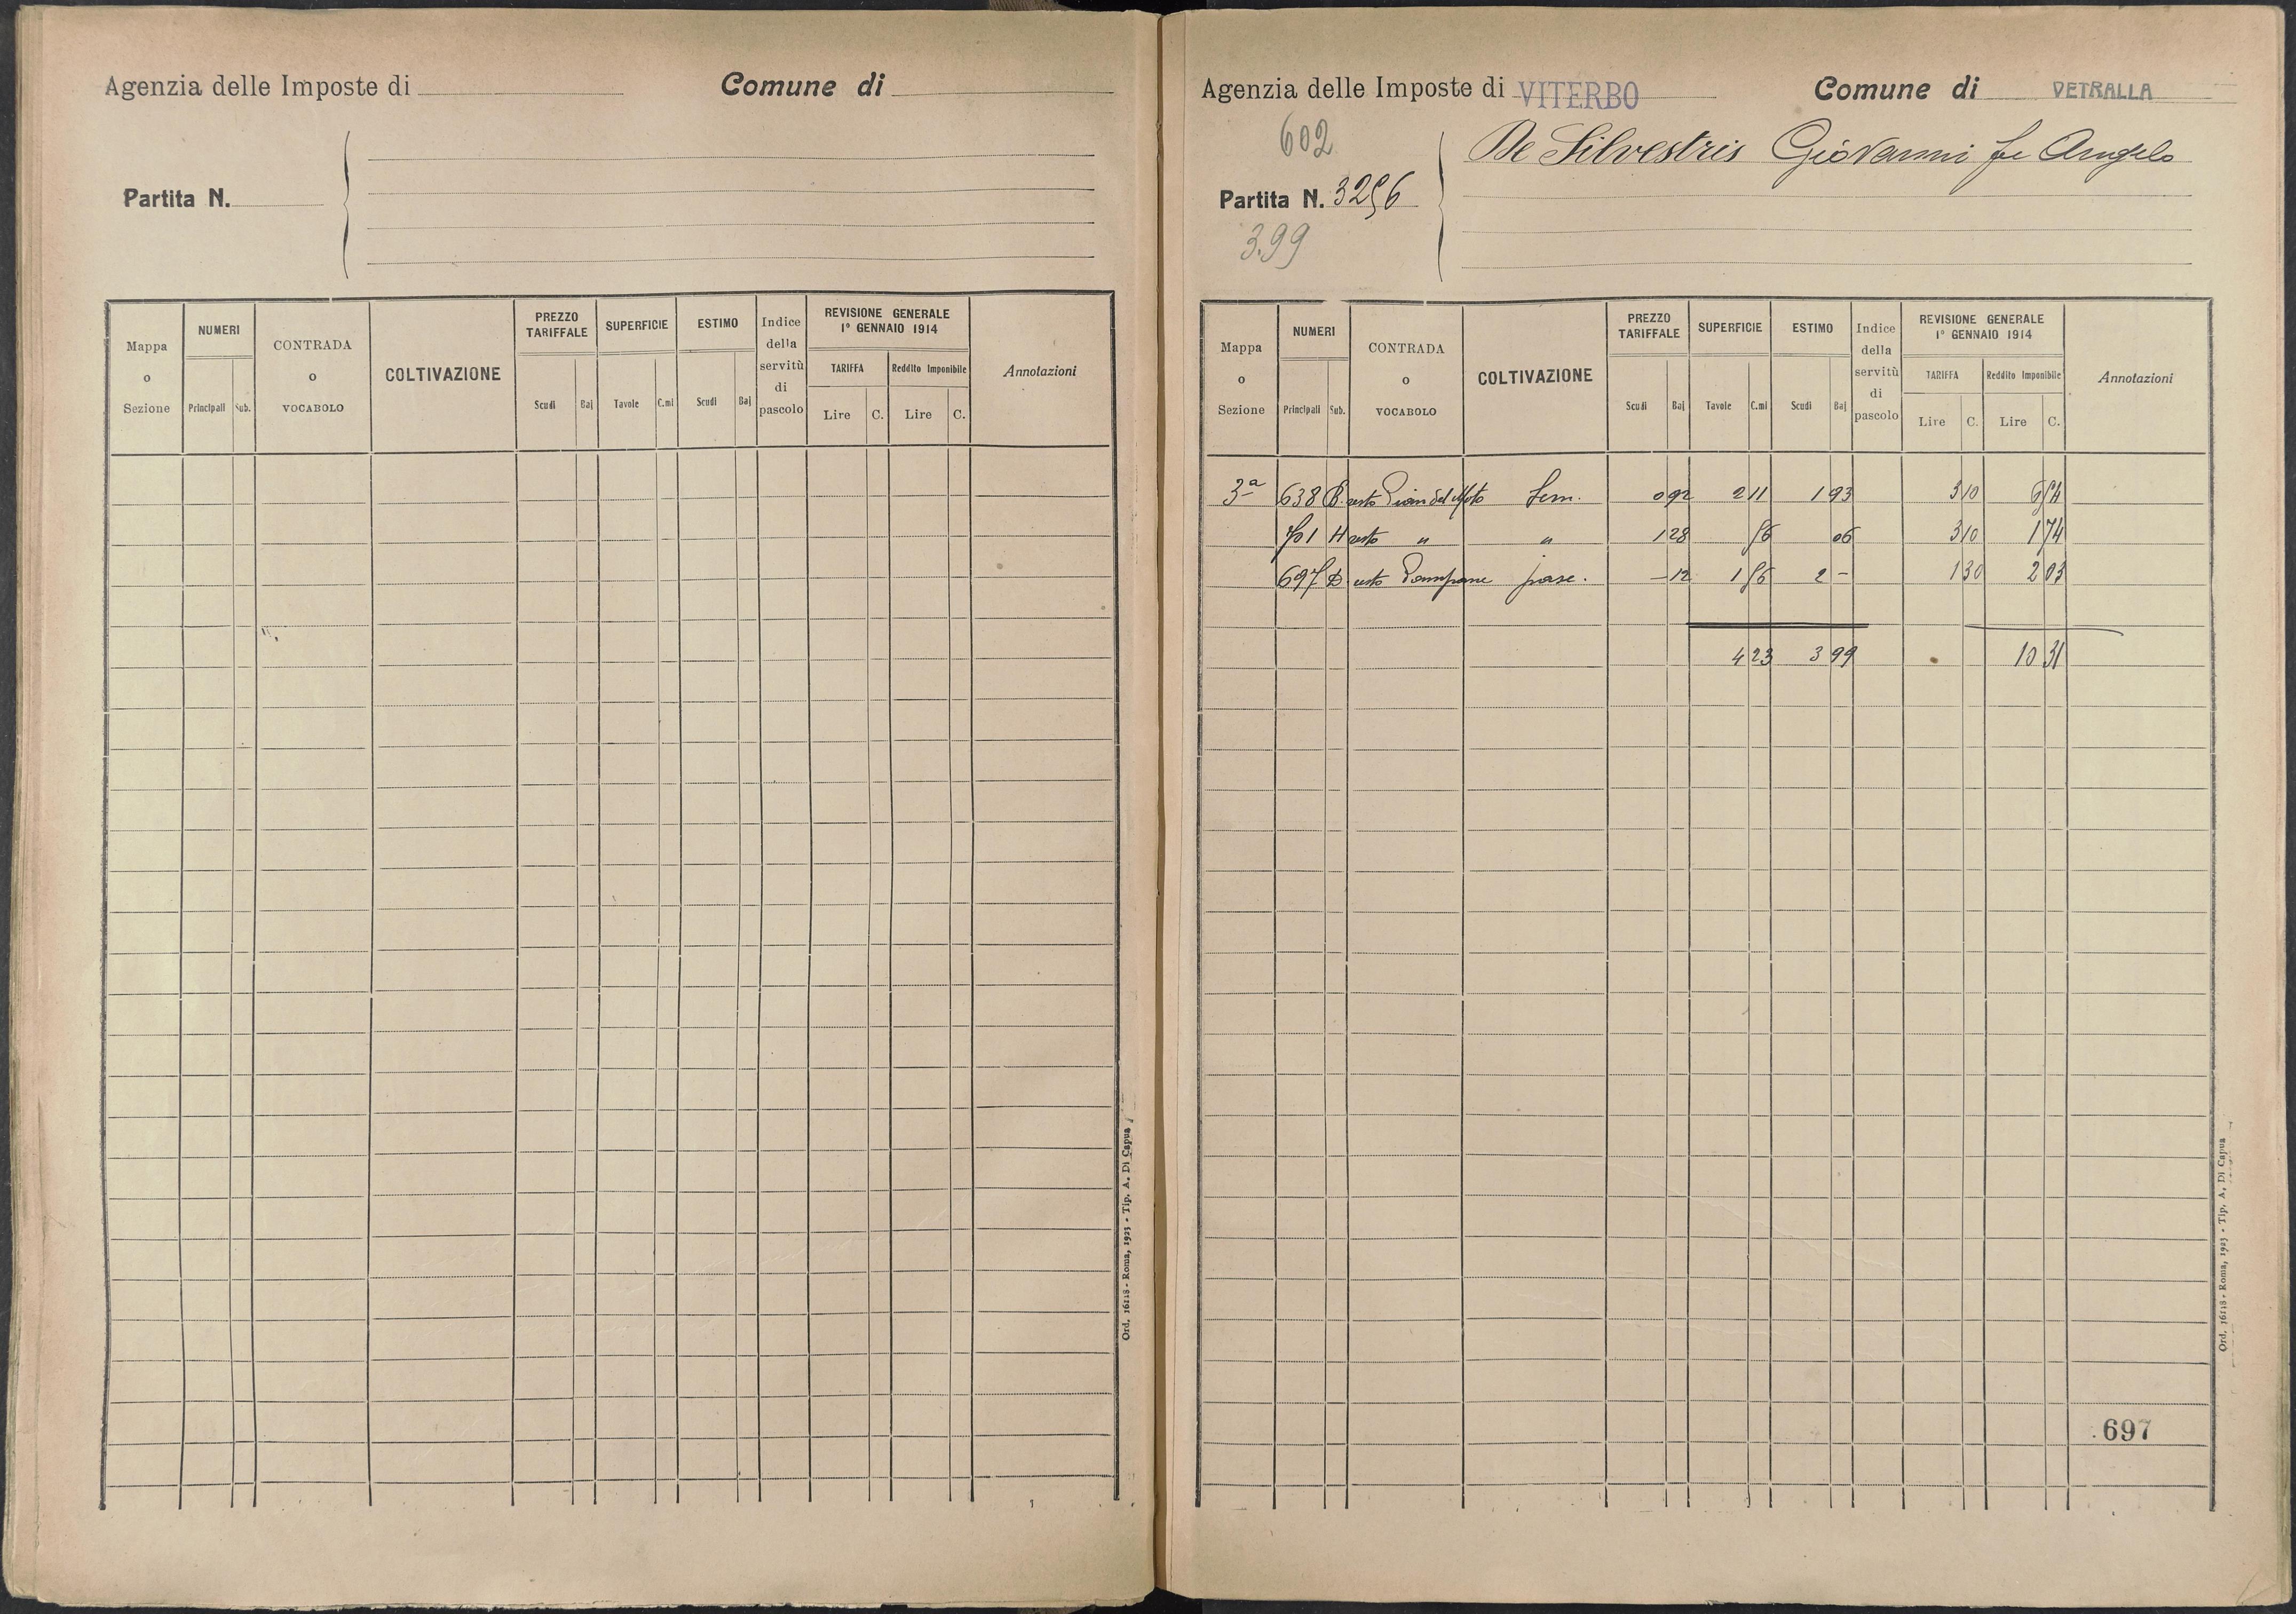 Agenzia delle Imposte di Comune di
Partita N.
Mappa o Sezione NUMERI Principali Sub. CONTRADA o VOCABOLO COLTIVAZIONE PREZZO TARIFFALE Scudi Baj SUPERFICIE Tavole C.mi ESTIMO Scudi Baj Indice della servitù di pascolo REVISIONE GENERALE 1º GENNAIO 1914 TARIFFA Lire C. Reddito Imponibile Lire C. Annotazioni
Ord. 16118 - Roma, 1923 - Tip. A. Di Capua
Agenzia delle Imposte di VITERBO Comune di VETRALLA
602
De Silvestris Giovanni fu Angelo
Partita N. 3256
3.99
Mappa o Sezione NUMERI Principali Sub. CONTRADA o VOCABOLO COLTIVAZIONE PREZZO TARIFFALE Scudi Baj SUPERFICIE Tavole C.mi ESTIMO Scudi Baj Indice della servitù di pascolo REVISIONE GENERALE 1º GENNAIO 1914 TARIFFA Lire C. Reddito Imponibile Lire C. Annotazioni
3ª 638 B. resto Pian del Sem. 0 92 2 11 1 93 3 10 6 54
701 H resto " " 1 28 56 06 3 10 1 74
697 D. resto pasc. - 12 1 56 2 - 1 30 2 03
4 23 3 99 10 31
697
Ord. 16118 - Roma, 1923 - Tip. A. Di Capua